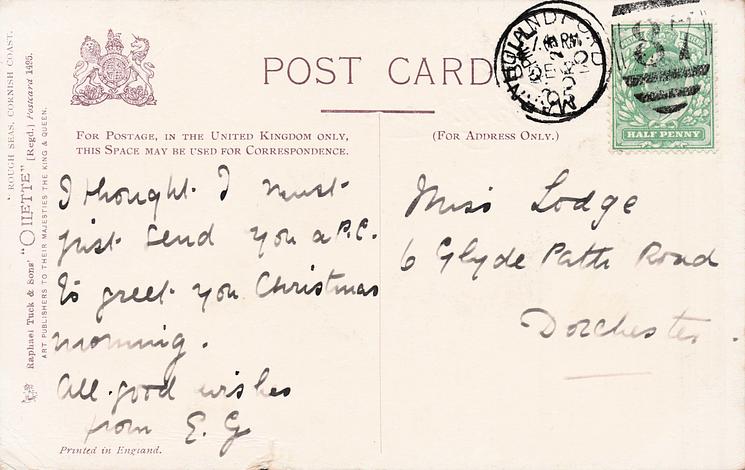 POST CARD
FOR POSTAGE, IN THE UNITED KINGDOM ONLY,
THIS SPACE MAY BE USED FOR CORRESPONDENCE.
(FOR ADDRESS ONLY.)
HALF PENNY
I thought I must
just send you a P.C.
to greet you Christmas
morning.
All good wishes
from E. G
Miss Lodge
6 Glyde Path Road
Dorchester.
Printed in England.
ROUGH SEAS, CORNISH COAST.
Raphael Tuck & Sons' "OILETTE" [Regd.] Postcard 1425.
ART PUBLISHERS TO THEIR MAJESTIES THE KING & QUEEN.
BLANDFORD